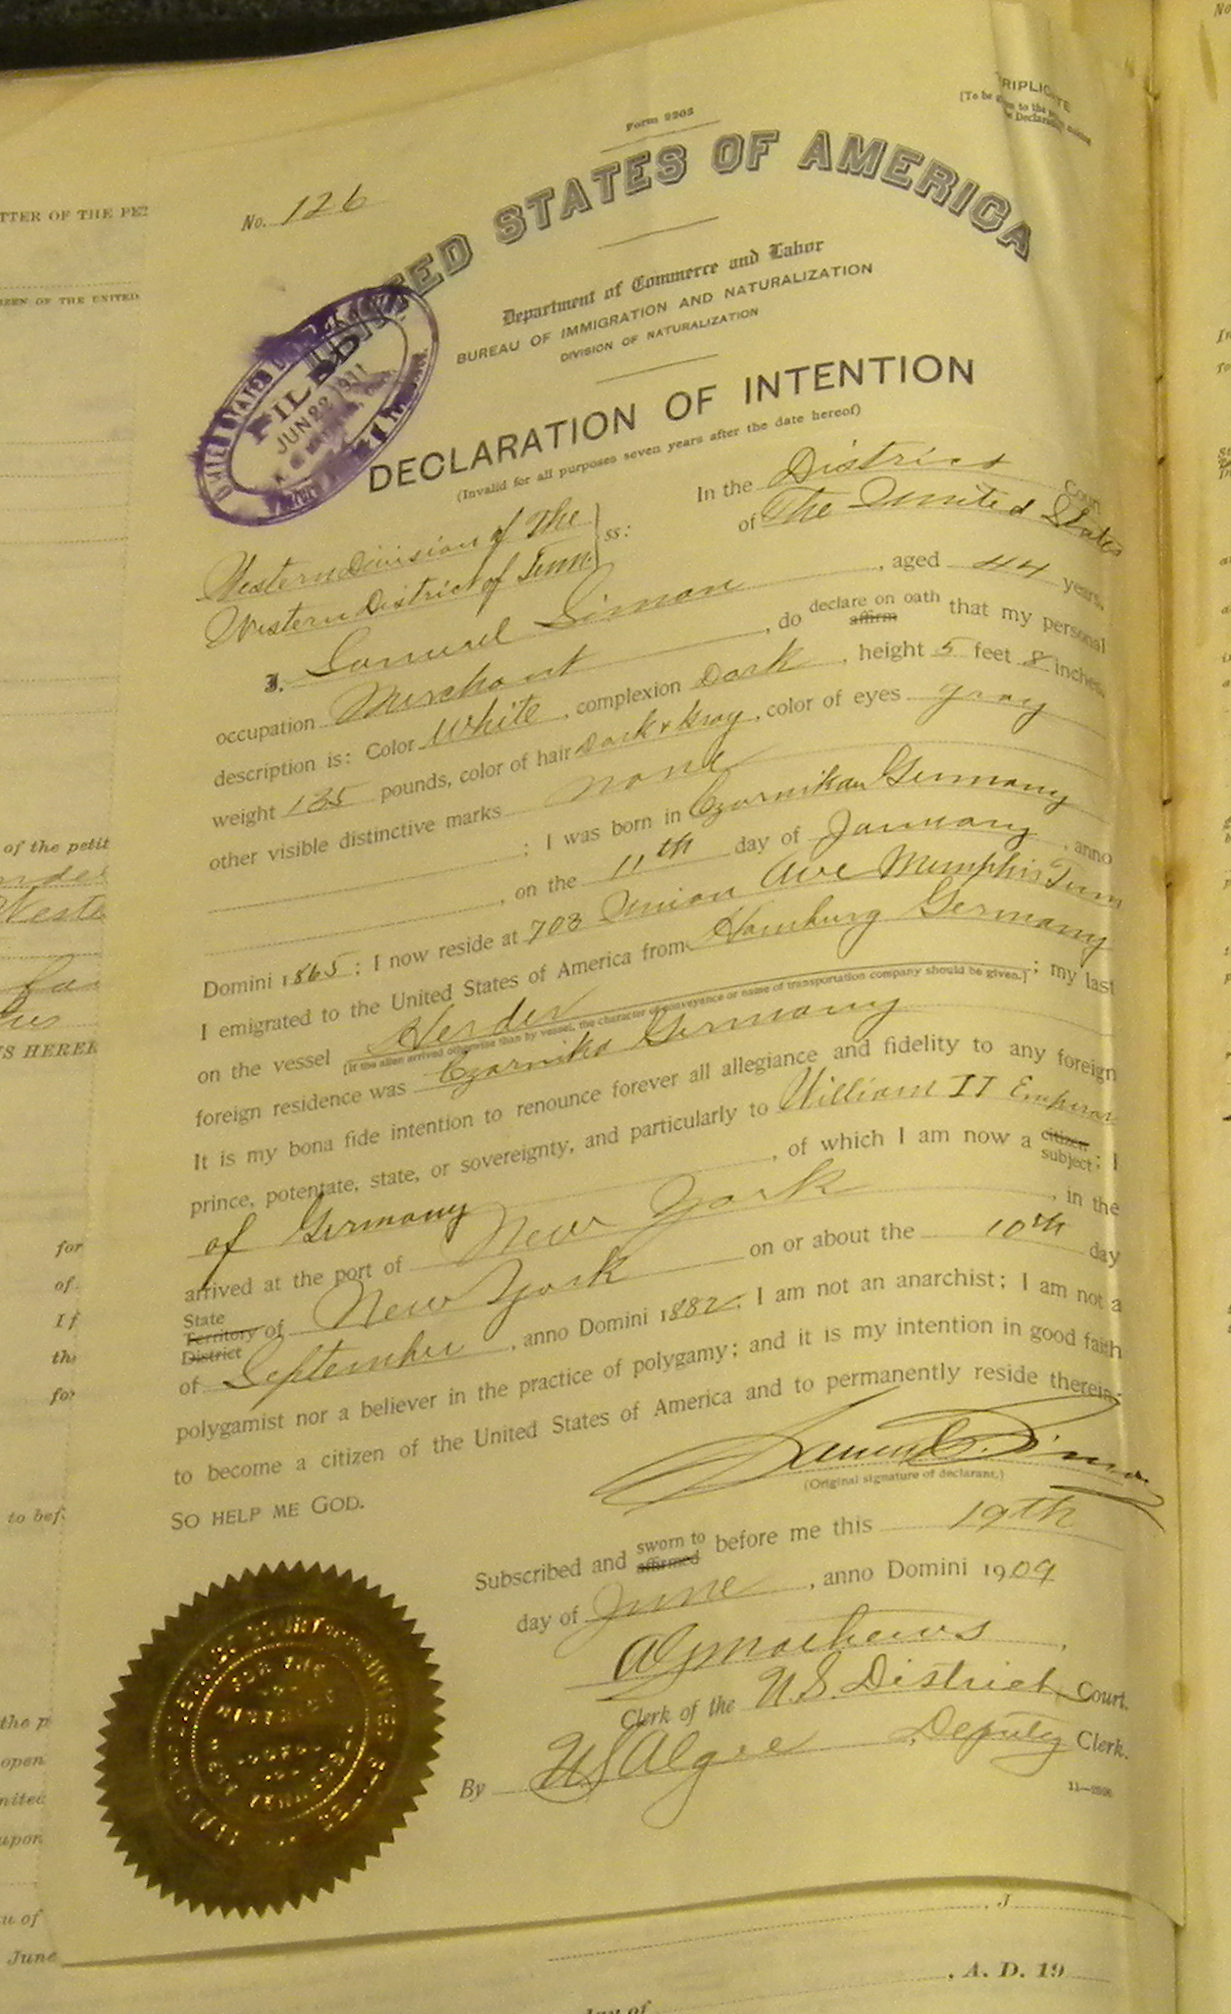 TRIPLICATE
Form 2203
No. 126
UNITED STATES OF AMERICA
Department of Commerce and Labor
BUREAU OF IMMIGRATION AND NATURALIZATION
DIVISION OF NATURALIZATION
FILED
JUN 22 1911
DECLARATION OF INTENTION
(Invalid for all purposes seven years after the date hereof)
In the District Court
of The United States
Western Division of The
Western District of Tenn. ss:
I, Samuel Simon, aged 44 years,
occupation Merchant, do declare on oath affirm that my personal
description is: Color White, complexion Dark, height 5 feet 8 inches,
weight 135 pounds, color of hair Dark & Gray, color of eyes gray
other visible distinctive marks none
: I was born in Czarnikau Germany
, on the 11th day of January, anno
Domini 1865: I now reside at 703 Union Ave Memphis Tenn
I emigrated to the United States of America from Hamburg Germany
on the vessel Herder; my last
(If the alien arrived otherwise than by vessel, the character of conveyance or name of transportation company should be given.)
foreign residence was Czarnika Germany
It is my bona fide intention to renounce forever all allegiance and fidelity to any foreign
prince, potentate, state, or sovereignty, and particularly to William II Emperor
of Germany, of which I am now a citizen subject; I
arrived at the port of New York, in the
State Territory District of New York on or about the 10th day
of September, anno Domini 1882; I am not an anarchist; I am not a
polygamist nor a believer in the practice of polygamy; and it is my intention in good faith
to become a citizen of the United States of America and to permanently reside therein:
SO HELP ME GOD.
Samuel Simon
(Original signature of declarant.)
Subscribed and sworn to affirmed before me this 19th
day of June, anno Domini 1909
Mathews
Clerk of the U.S. District Court.
By Algee, Deputy Clerk.
TTER OF THE PE
ZEN OF THE UNITED
of the petit
Weste
IS HEREB
for
of
If
the
for
to bef
the p
open
nited
upon
u of
June
, A. D. 19